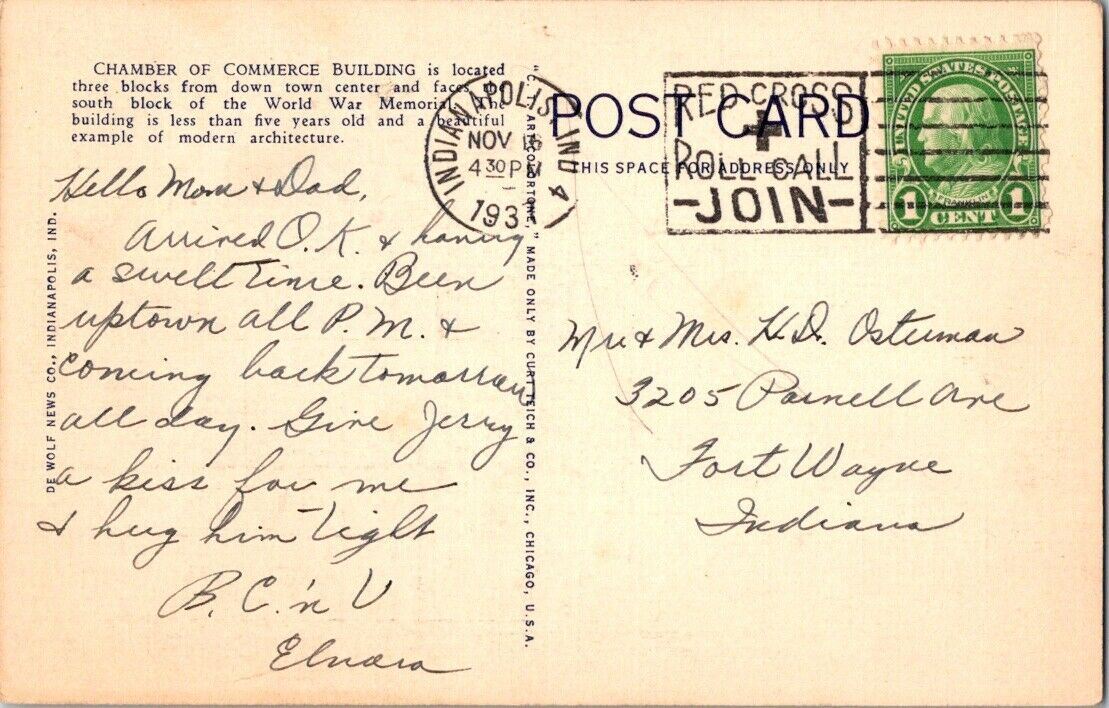 CHAMBER OF COMMERCE BUILDING is located
three blocks from down town center and faces the
south block of the World War Memorial. The
building is less than five years old and a beautiful
example of modern architecture.
Hello Mom & Dad,
Arrived O.K. & having
a swell time. Been
uptown all P.M. &
coming back tomorrow
all day. Give Jerry
a kiss for me
& hug him tight
B.C.'n U
DE WOLF NEWS CO., INDIANAPOLIS, IND.
"C.T. ART-COLORTONE," MADE ONLY BY CURT TEICH & CO., INC., CHICAGO, U.S.A.
POST CARD
THIS SPACE FOR ADDRESS ONLY
INDIANAPOLIS, IND 4
NOV
4 30 PM
193
RED CROSS
ROLL CALL
-JOIN-
UNITED STATES POSTAGE
FRANKLIN
1 CENT 1
Mr & Mrs. H.D. Osterman
3205 Parnell Ave
Fort Wayne
Indiana